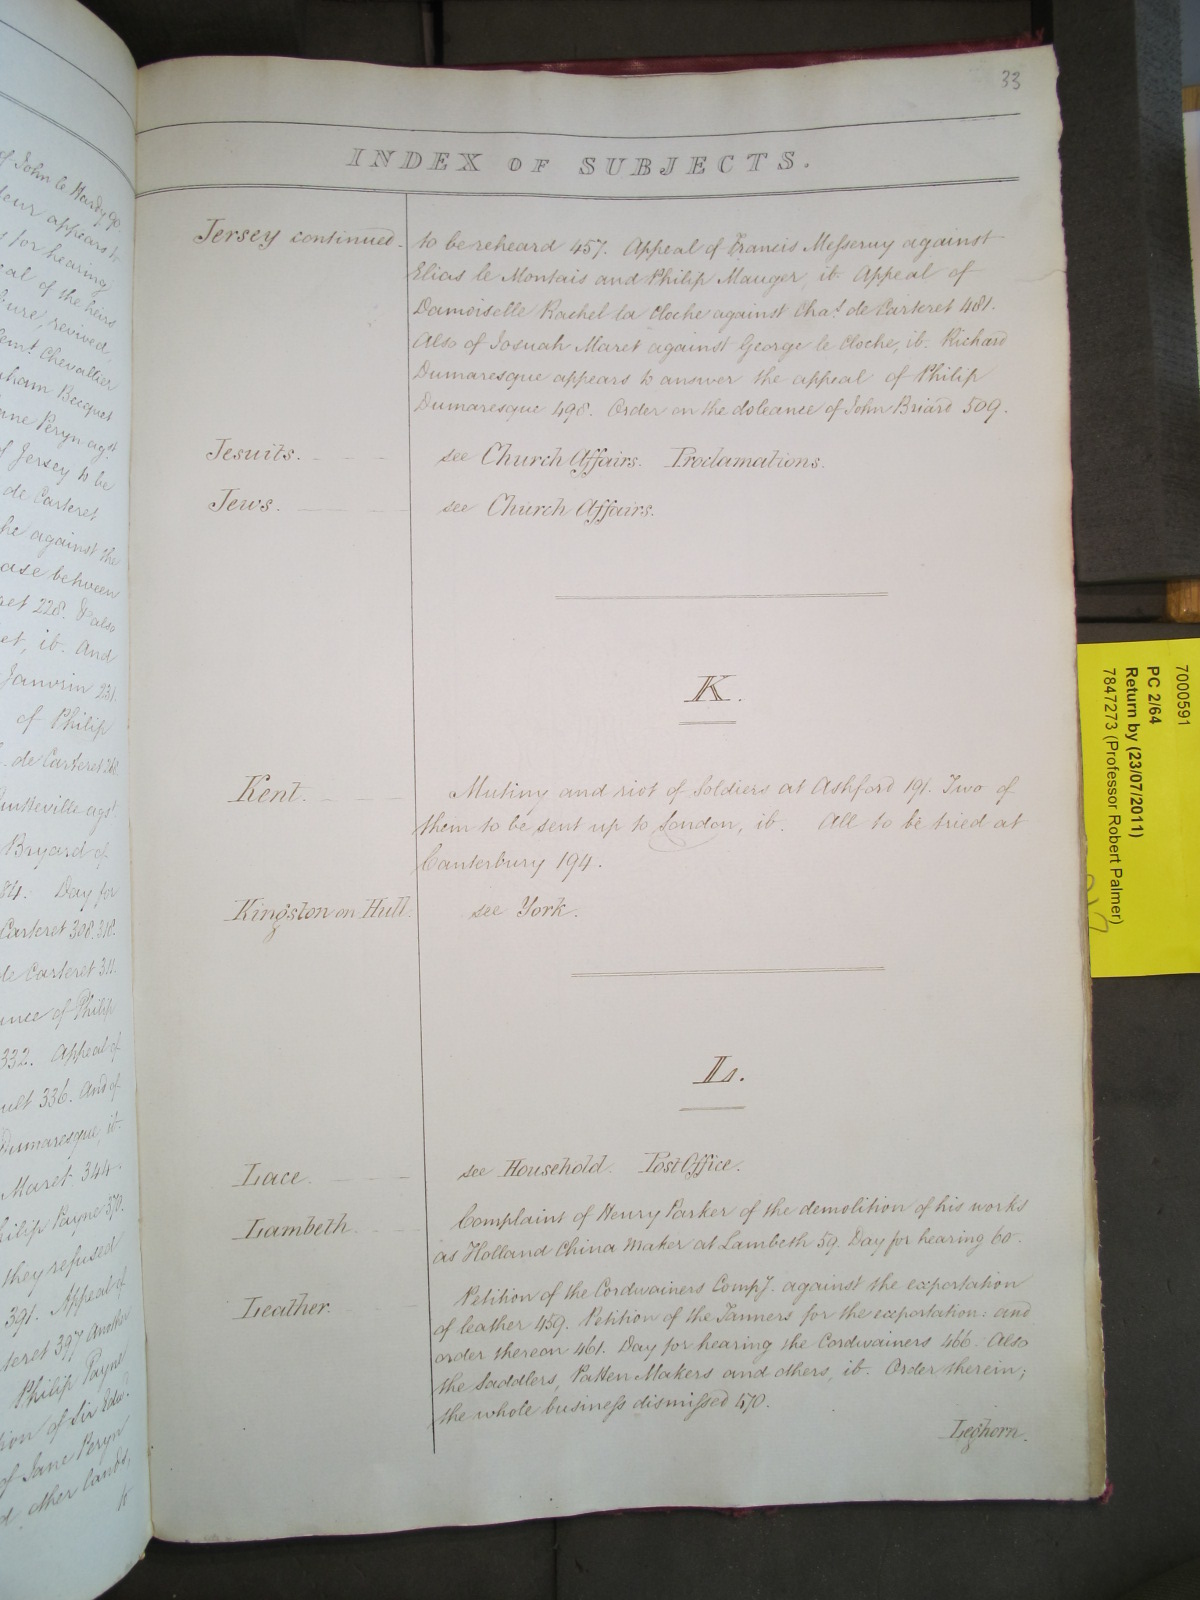 33
INDEX OF SUBJECTS.
Jersey continued. to be reheard 457. Appeal of Francis Messervy against
Elias le Montais and Philip Mauger, ib. Appeal of
Damoiselle Rachel la Cloche against Chas. de Carteret 481.
Also of Josuah Maret against George le Cloche, ib. Richard
Dumaresque appears to answer the appeal of Philip
Dumaresque 498. Order on the doleance of John Briard 509.
Jesuits. see Church Affairs. Proclamations.
Jews. see Church Affairs.
K.
Kent. Mutiny and riot of Soldiers at Ashford 191. Two of
them to be sent up to London, ib. All to be tried at
Canterbury 194.
Kingston on Hull. see York.
L.
Lace. see Household. Post Office.
Lambeth. Complaint of Henry Parker of the demolition of his works
as Holland China Maker at Lambeth 59. Day for hearing 60.
Leather. Petition of the Cordwainers Compy. against the exportation
of leather 459. Petition of the Tanners for the exportation: and
order thereon 461. Day for hearing the Cordwainers 466. Also
the Saddlers, Patten Makers and others, ib. Order therein;
the whole business dismissed 470.
Leghorn.
7000591
PC 2/64
Return by (23/07/2011)
7847273 (Professor Robert Palmer)
of John le Hardy
appears to
for hearing
of the heirs
revived,
Chevallier
Becquet
Peryn agst
Jersey to be
de Carteret
he against the
between
228.
ib. And
Janvrin 231.
of Philip
de Carteret
agst.
Bryard of
84. Day for
Carteret 308.
de Carteret 311.
of Philip
332. Appeal of
336. And of
Dumaresque, ib.
Maret 344.
Philip Payne 370.
they refused
391. Appeal of
397 Another
Philip Payne
of Sir Edwd.
of Jane Peryn
other lands,